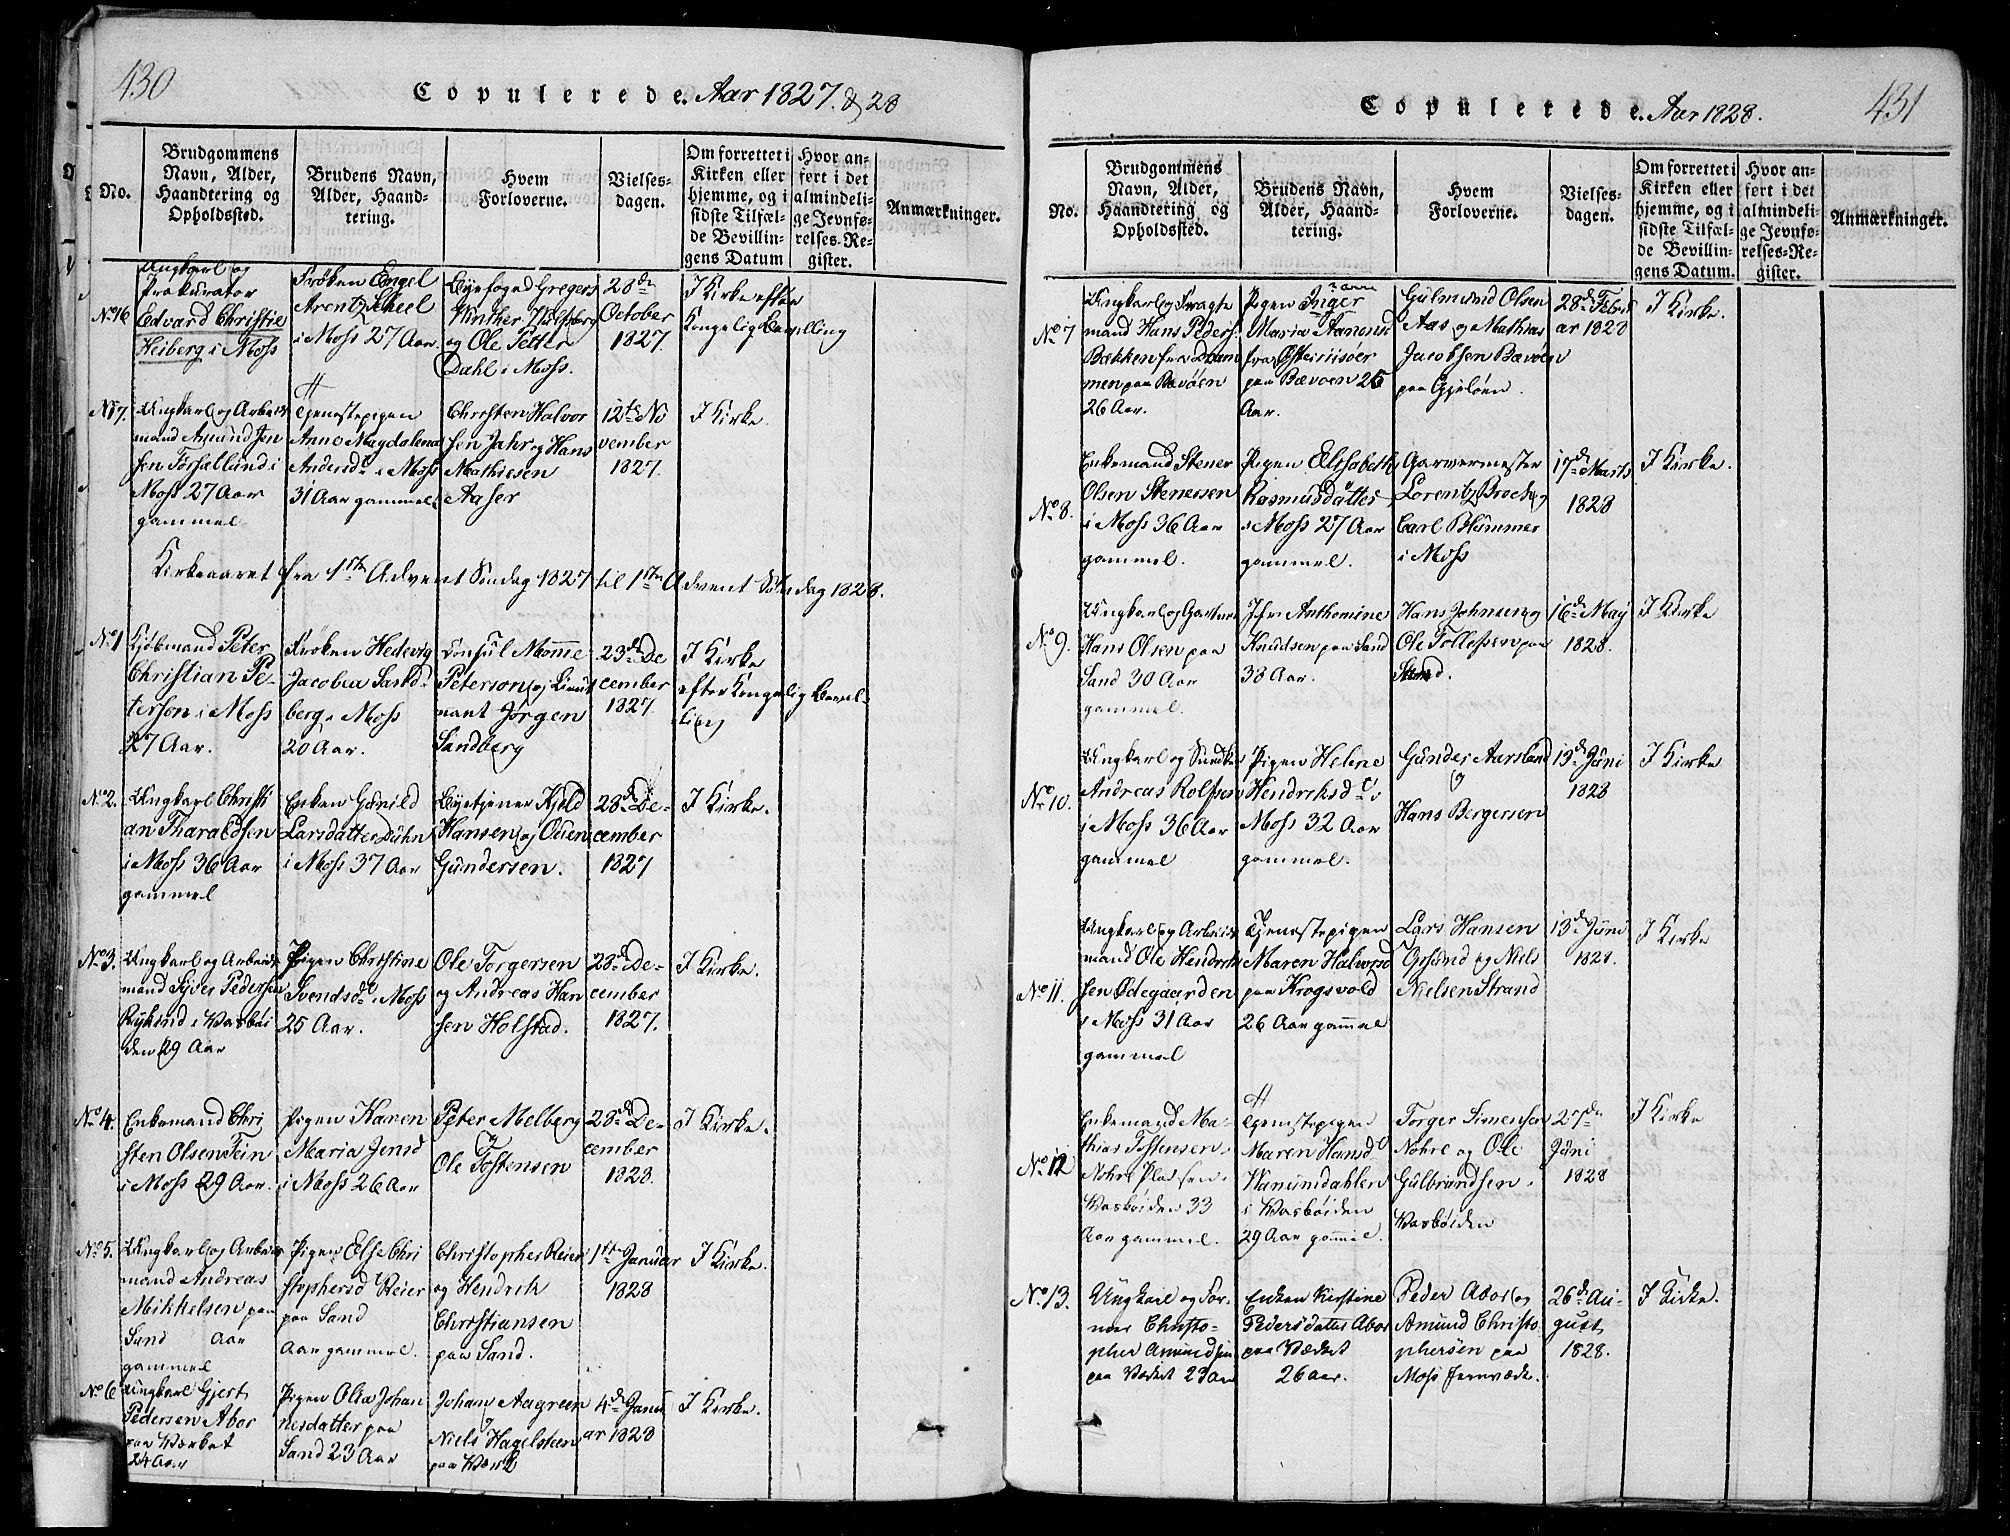 430
Copulerede. Aar 1827. & 28
No.
Brudgommens
Navn, Alder,
Haandtering og
Opholdssted.
Brudens Navn,
Alder, Haand-
tering.
Hvem
Forloverne.
Vielses-
dagen.
Om forrettet i
Kirken eller
hjemme, og i
sidste Tilfæl-
de Bevillin-
gens Datum
Hvor an-
ført i det
almindeli-
ge Jevnfø-
relses-Re-
gister.
Anmærkninger.
No 16
Ungkarl og
Prokurator
Edvard Christie
Heiberg i Moss
Frøken Engel
Arentz Scheel
i Moss 27 Aar.
Byefoged Gregers
Winther Wulfsberg
og Ole Petter
Dahl i Moss.
28de
October
1827.
I Kirke efter
Kongelig Bevilling
No 17.
Ungkarl og Arbeids
mand Asmund Jen
sen Forfallund i
Moss 27 Aar
gammel
Tjenestepigen
Anne Magdalena
Andersd. i Moss
31 Aar gammel.
Christen Halvor
sen Jahr og Hans
Mathiesen
Aaser
12te No
vember
1827.
I Kirke
Kirkeaaret fra 1ste Advent Søndag 1827 til 1ste Advent Søndag 1828.
No 1
Kjøbmand Peter
Christian Pe-
tersen i Moss
27 Aar.
Frøken Hedevig
Jacobea Sand-
berg i Moss
20 Aar.
Consul Momme
Peterson og Lieut
nant Jørgen
Sandberg
23de De
cember
1827.
I Kirke
efter Kongelig Bevil-
ling
No 2.
Ungkarl Christi
an Tharaldsen
i Moss 36 Aar
gammel
Enken Gunild
Larsdatter Duhn
i Moss 37 Aar
Byetjener Kield
Hansen og Odien
Gundersen.
28de De-
cember
1827
I Kirke.
No 3.
Ungkarl og Arbeids
mand Syver Pedersen
Rykind i Vasbøi
den 29 Aar
Pigen Christine
Svendsd. i Moss
25 Aar.
Ole Torgersen
og Andreas Han
sen Holstad.
28de De-
cember
1827.
I Kirke.
No 4.
Enkemand Chri
sten Olsen Fein
i Moss 29 Aar.
Pigen Karen
Maria Jensd
i Moss 26 Aar
Peter Melberg
og
Ole Tostensen
28de De-
cember
1828.
I Kirke.
No 5.
Ungkarl og Arbeids
mand Andreas
Mikkelsen paa
Sand Aar
gammel
Pigen Else Chri
stophersd Reier
paa Sand
Aar gammel.
Christopher Reier
og Hendrik
Christiansen
paa Sand.
1ste Januar
1828
I Kirke.
No 6
Ungkarl Gjert
Pedersen Abor
paa Værket
24 Aar
Pigen Olia Johan
nesdatter paa
Sand 23 Aar
Johan Aagreen
og
Niels Hagelsteen
paa Værk
4de Janu
ar 1828
I Kirke.
431
Copulerede. Aar 1828.
No.
Brudgommens
Navn, Alder,
Haandtering og
Opholdssted.
Brudens Navn,
Alder, Haand-
tering.
Hvem
Forloverne.
Vielses-
dagen.
Om forrettet i
Kirken eller
hjemme, og i
sidste Tilfæl-
de Bevillin-
gens Datum.
Hvor an-
ført i det
almindeli-
ge Jevnfø-
relses-Re-
gister.
Anmærkninger.
No 7
Ungkarl og Fragte
mand Hans Peders.
Bækken fra Dram
men paa Bævøen
26 Aar.
Pigen Inger
Maria Aanensd
fra Østerriisøer
paa Bævøen 25
Aar.
Gulmund Olsen
Aas og Mathias
Jacobsen Bævøen
paa Gjeløen.
28de Febru
ar 1828
I Kirke.
No 8.
Enkemand Stener
Olsen Stenersen
i Moss 36 Aar
gammel.
Pigen Elisabeth
Rasmusdatter
i Moss 27 Aar
gammel.
Garvermester
Lorentz Brock og
Carl Blummer
i Moss
17de Marts
1828
I Kirke.
No 9.
Ungkarl og Gartner
Hans Olsen paa
Sand 30 Aar
gammel.
Jfr Anthomine
Knudsen paa Sand
38 Aar.
Hans Johnsen og
Ole Tollefsen paa
Sand.
16de May
1828.
I Kirke
No 10.
Ungkarl og
Andreas Rolfsen
i Moss 36 Aar
gammel
Pigen Helene
Hendriksd i
Moss 32 Aar
gammel.
Gunder Aarsland
og
Hans Bergersen
13de Juni
1828
I Kirke
No 11.
Ungkarl og Arbeids
mand Ole Hendrik
sen Ødegaarden
i Moss 31 Aar
gammel
Tjenestepigen
Maren Halvorsd
paa Krogsvold
26 Aar gammel
Lars Hansen
Grund og Niels
Nielsen Strand
13de Juni
1828.
I Kirke
No 12
Enkemand Ma-
thias Tostensen
Nohre Pladsen i
Vasbøiden 33
Aar gammel.
Tjenestepigen
Maren Hansd
Vammdahlen
i Vasbøiden
29 Aar gammel.
Torger Simensen
Nohre og Ole
Gulbrandsen i
Vasbøiden
27de
Juni
1828
I Kirke
No 13.
Ungkarl og For-
mer Christo-
pher Amundsen
paa Værket 23 Aar
Enken Kirstine
Pedersdatter Abor
paa Værket
26 Aar.
Peder Abor og
Amund Christo
phersen paa
Moss Jernværk.
26de Au-
gust
1828.
I Kirke.